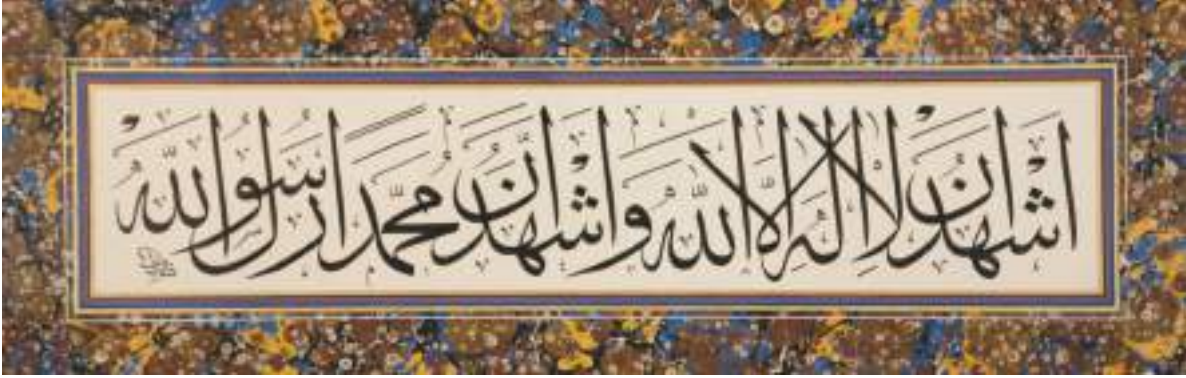 اشهد ان لا اله الا الله و اشهد ان محمدا رسول الله